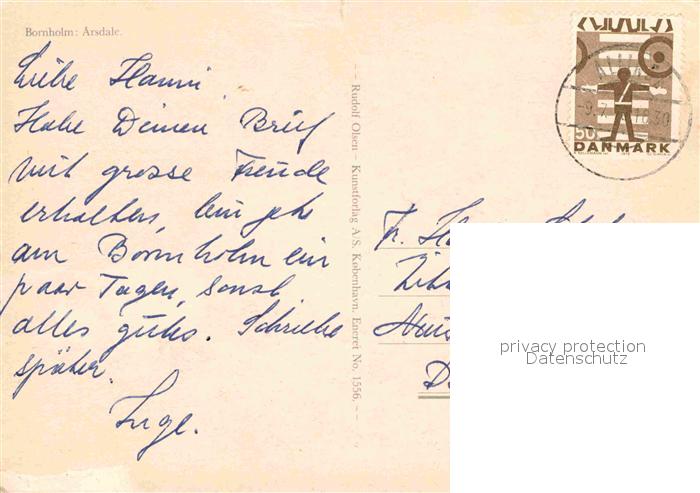 Bornholm: Årsdale.
Liebe Hanni
Habe Deinen Brief
mit grosse Freude
erhalten, bin jetz
am Bornholm ein
paar Tagen, sonst
alles gutes. Schriebe
später.
Inge.
-- Rudolf Olsen - Kunstforlag A/S. København. Eneret No. 1556. --
50
DANMARK
Fr. 
privacy protection
Datenschutz